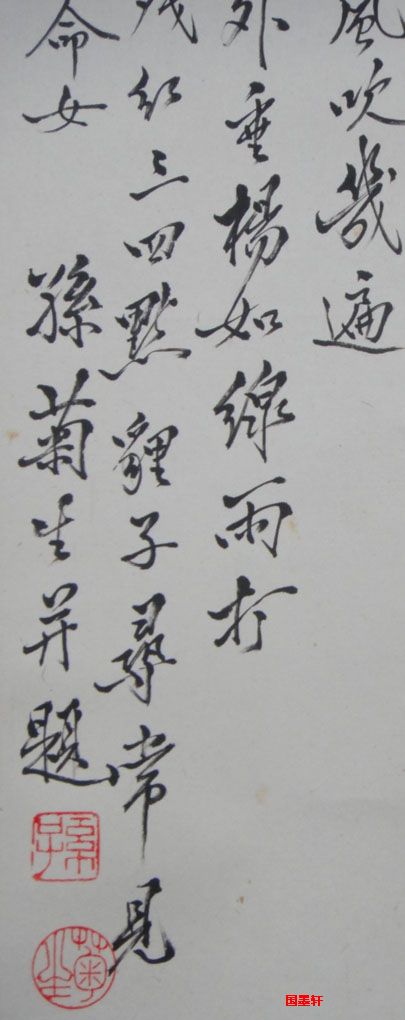 風吹幾遍
外垂楊如線雨打
殘紅三四點貍子尋常見
命女　孫菊生并題
孫
菊生
国墨轩